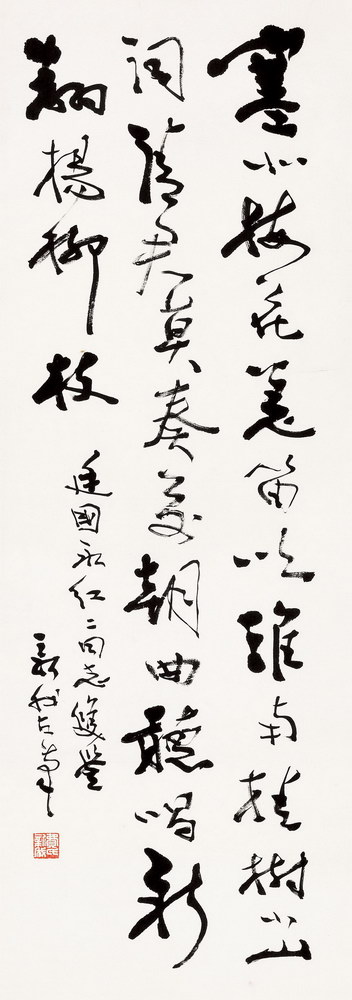 塞北梅花羌笛吹淮南桂樹小山
詞請君莫奏前朝曲聽唱新
翻楊柳枝
國永紅二同志雙鑒
新我左筆